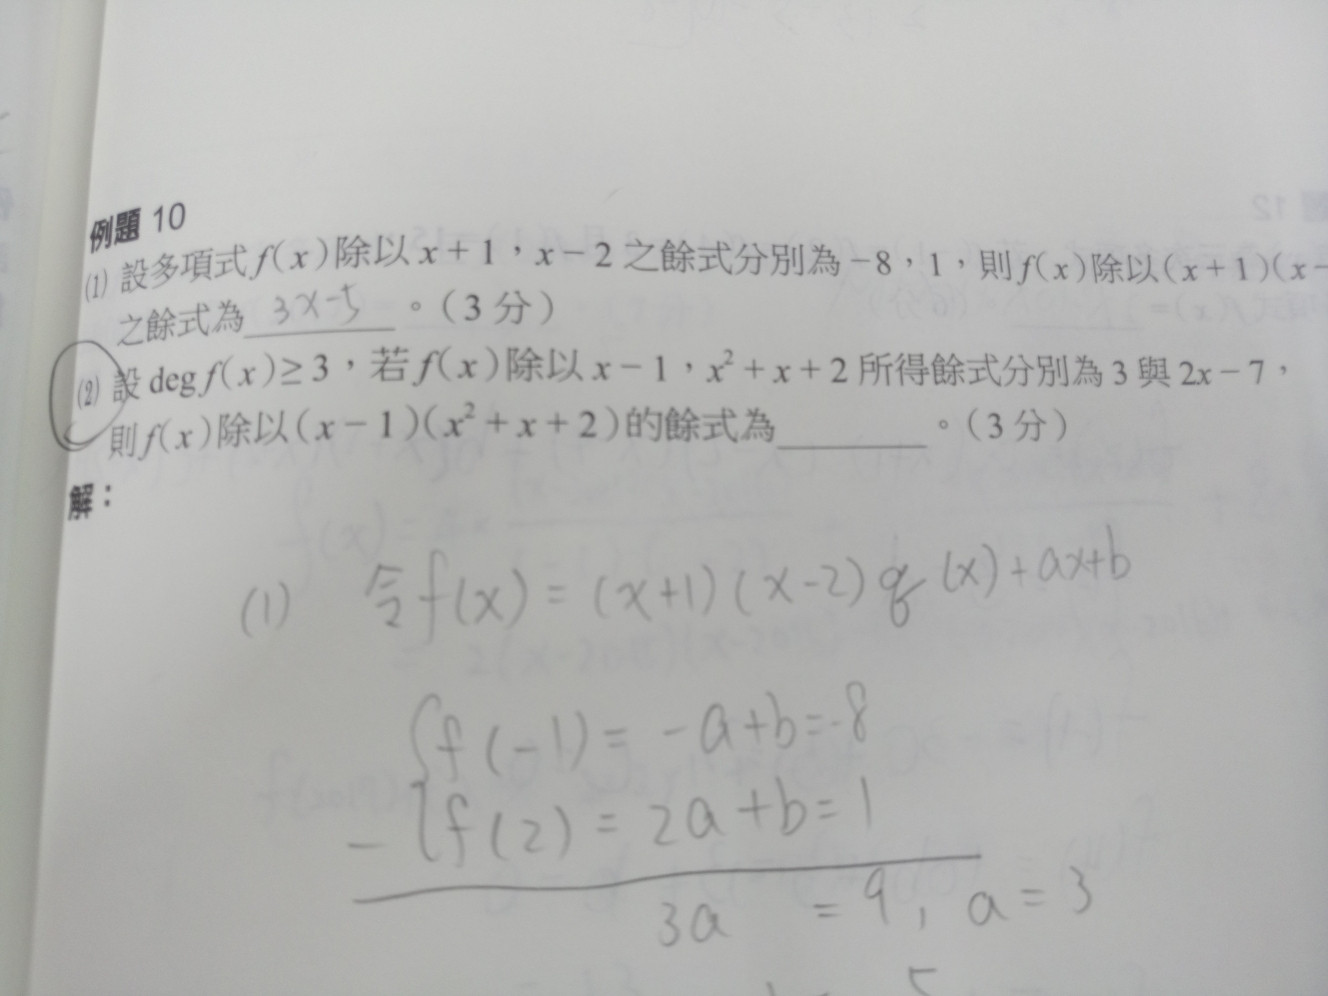 例題 10
(1) 設多項式 f(x) 除以 x+1，x−2 之餘式分別為 −8，1，則 f(x) 除以 (x+1)(x−
之餘式為 3x-5 。（3 分）
(2) 設 deg f(x)≥3，若 f(x) 除以 x−1，x²+x+2 所得餘式分別為 3 與 2x−7，
則 f(x) 除以 (x−1)(x²+x+2) 的餘式為________。（3 分）
解：
(1) 令f(x) = (x+1)(x-2)q(x)+ax+b
f(-1) = -a+b=-8
- f(2) = 2a+b=1
3a = 9, a=3